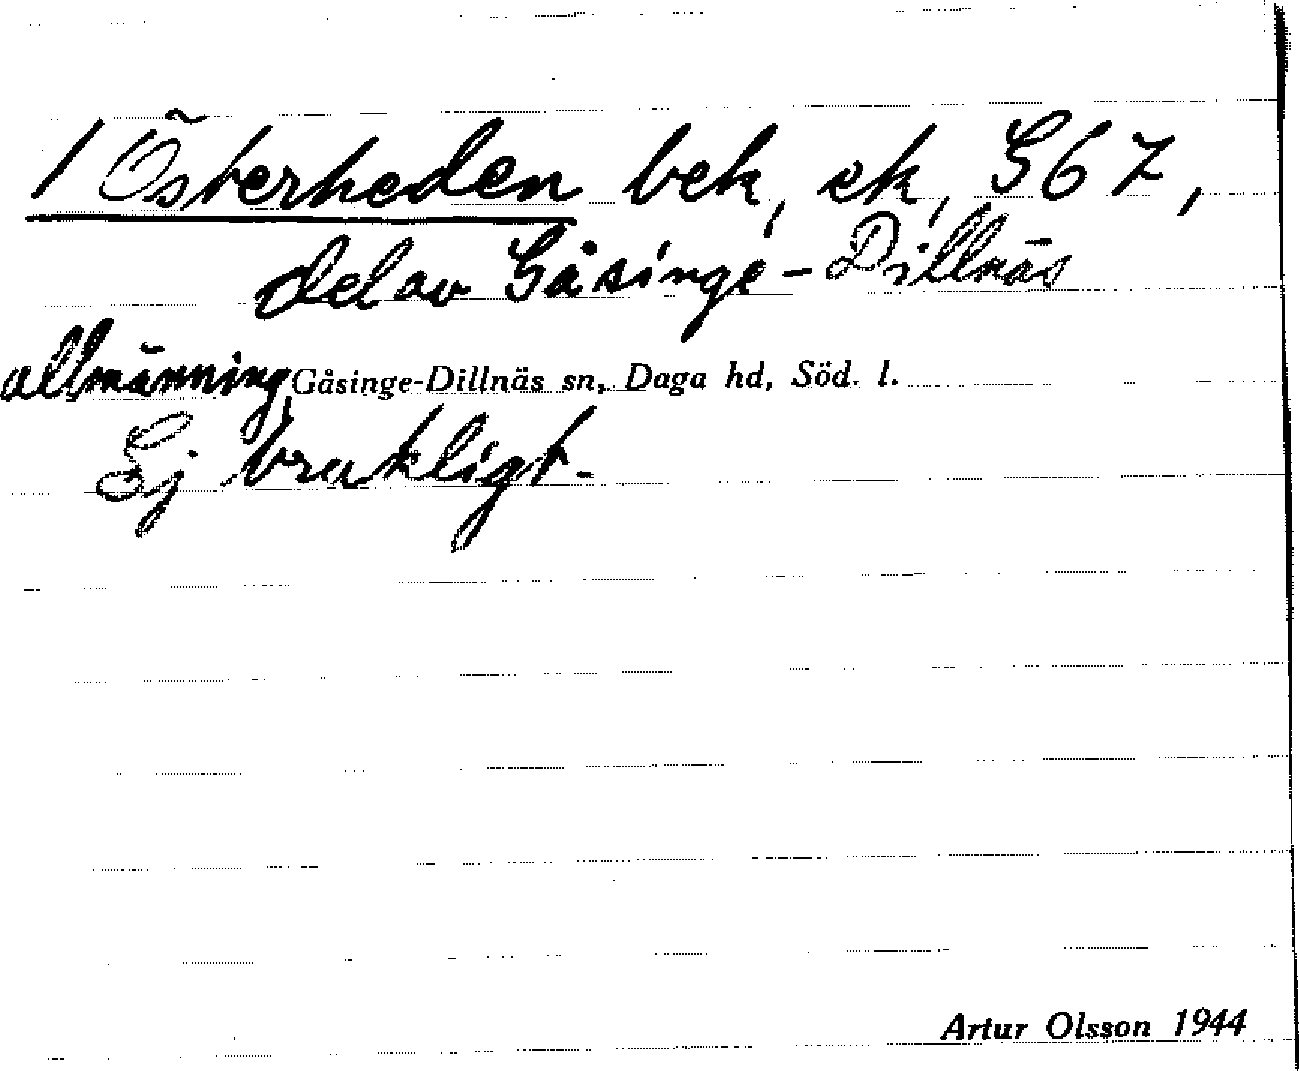 / Österheden bek, ek, G67,
del av Gåsinge-Dillnäs
allmänning, Gåsinge-Dillnäs sn, Daga hd, Söd. l.
Ej brukligt.
Artur Olsson 1944